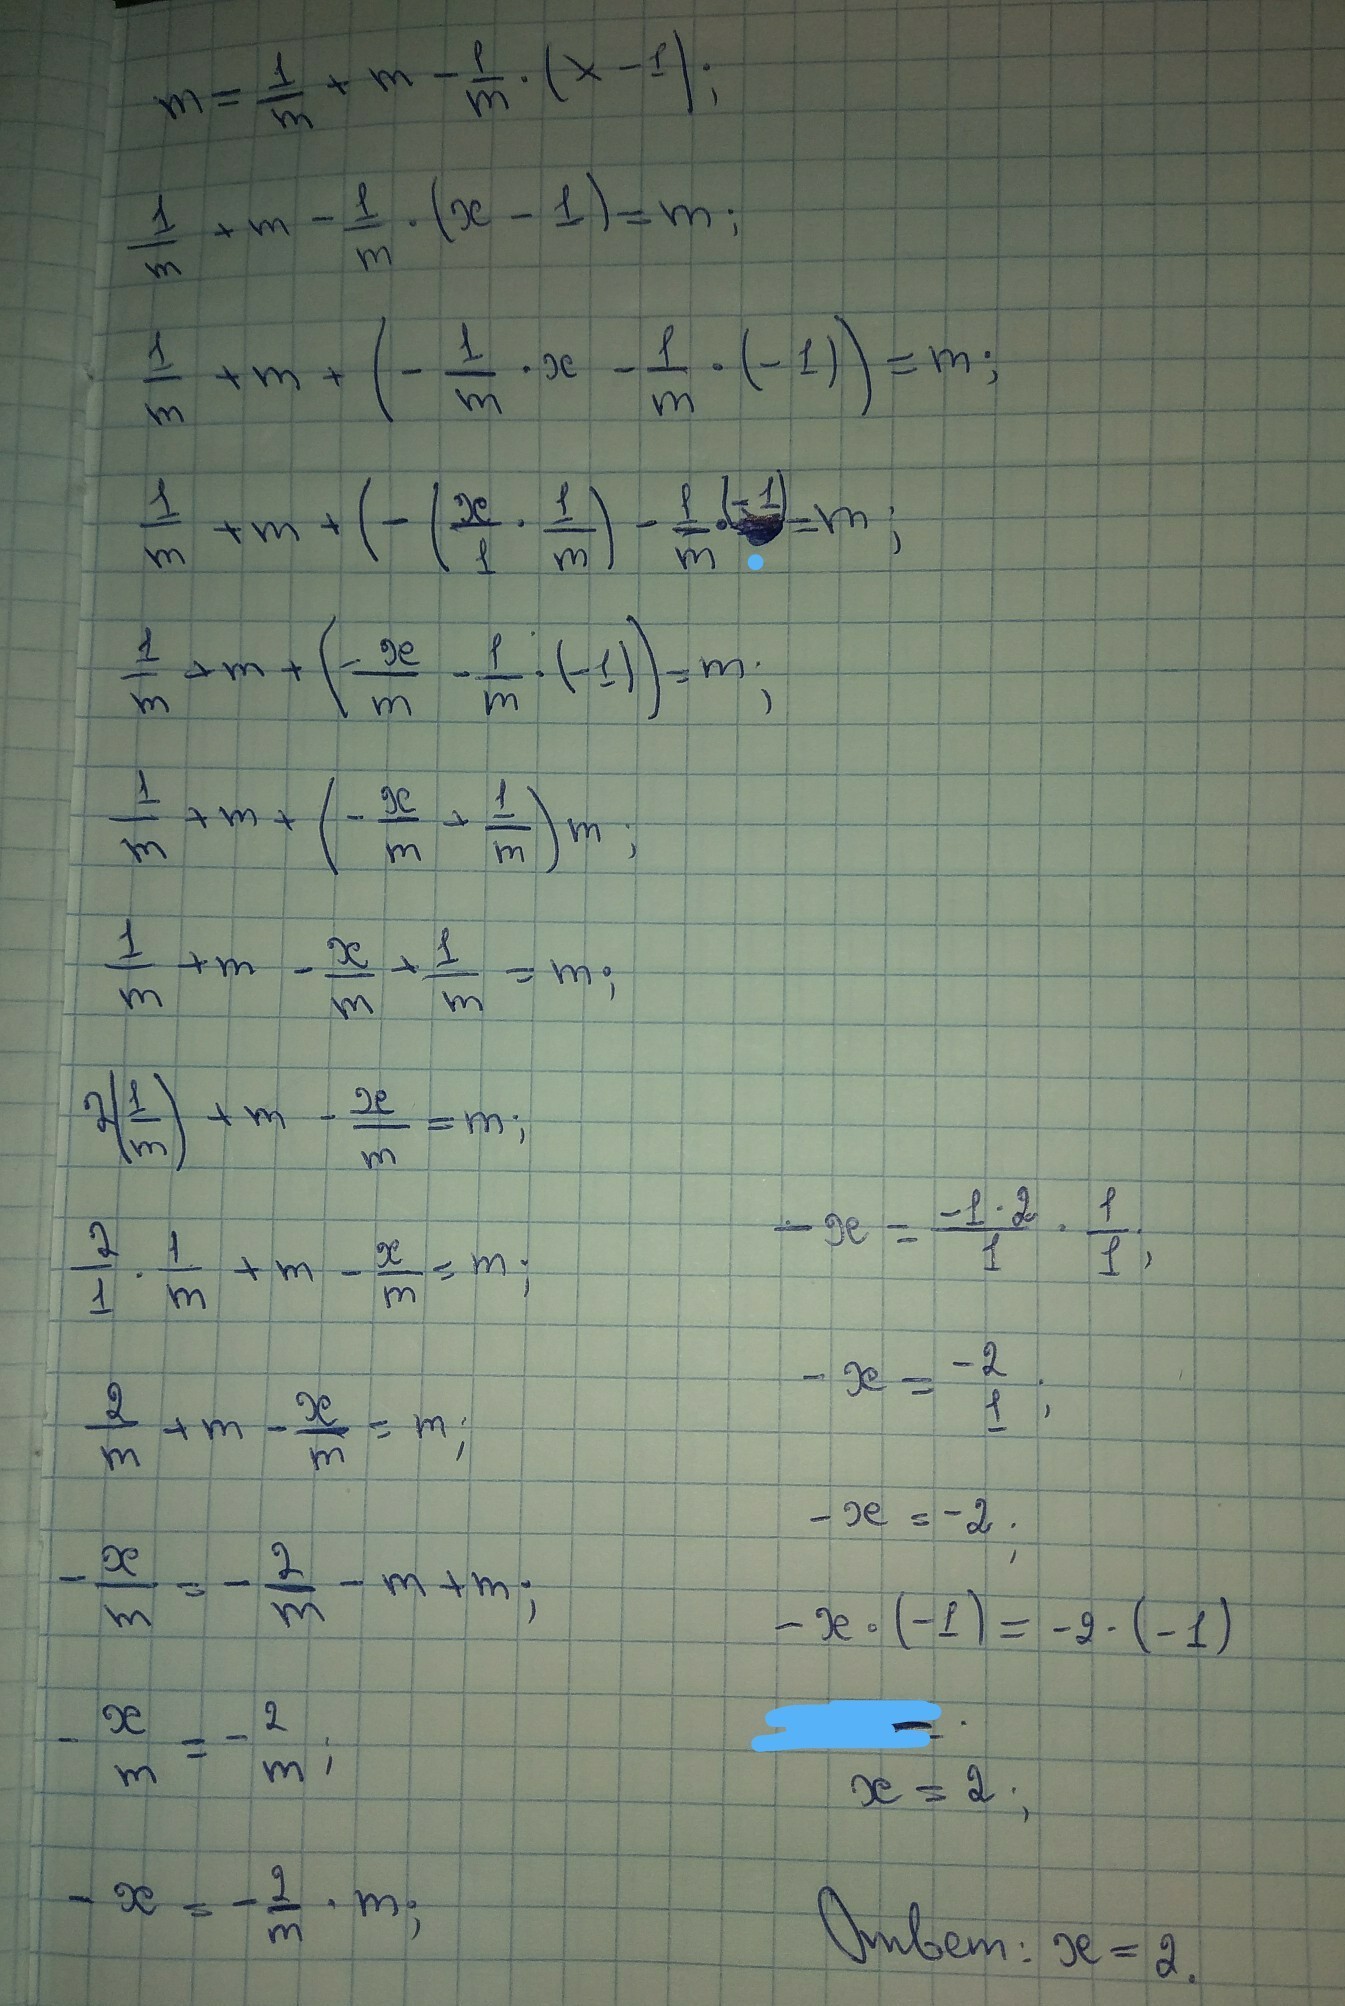 m = 1/m + m - 1/m · (x - 1);
1/m + m - 1/m · (x - 1) = m;
1/m + m + (- 1/m · x - 1/m · (-1)) = m;
1/m + m + (- (x/1 · 1/m) - 1/m · (-1) = m;
1/m + m + (- x/m - 1/m · (-1)) = m;
1/m + m + (- x/m + 1/m) m;
1/m + m - x/m + 1/m = m;
2(1/m) + m - x/m = m;
2/1 · 1/m + m - x/m = m;
2/m + m - x/m = m;
- x/m = - 2/m - m + m;
- x/m = - 2/m;
- x = - 2/m · m;
- x = -1·2/1 · 1/1;
- x = -2/1;
- x = -2;
- x · (-1) = -2 · (-1)
x = 2;
Ответ: x = 2.